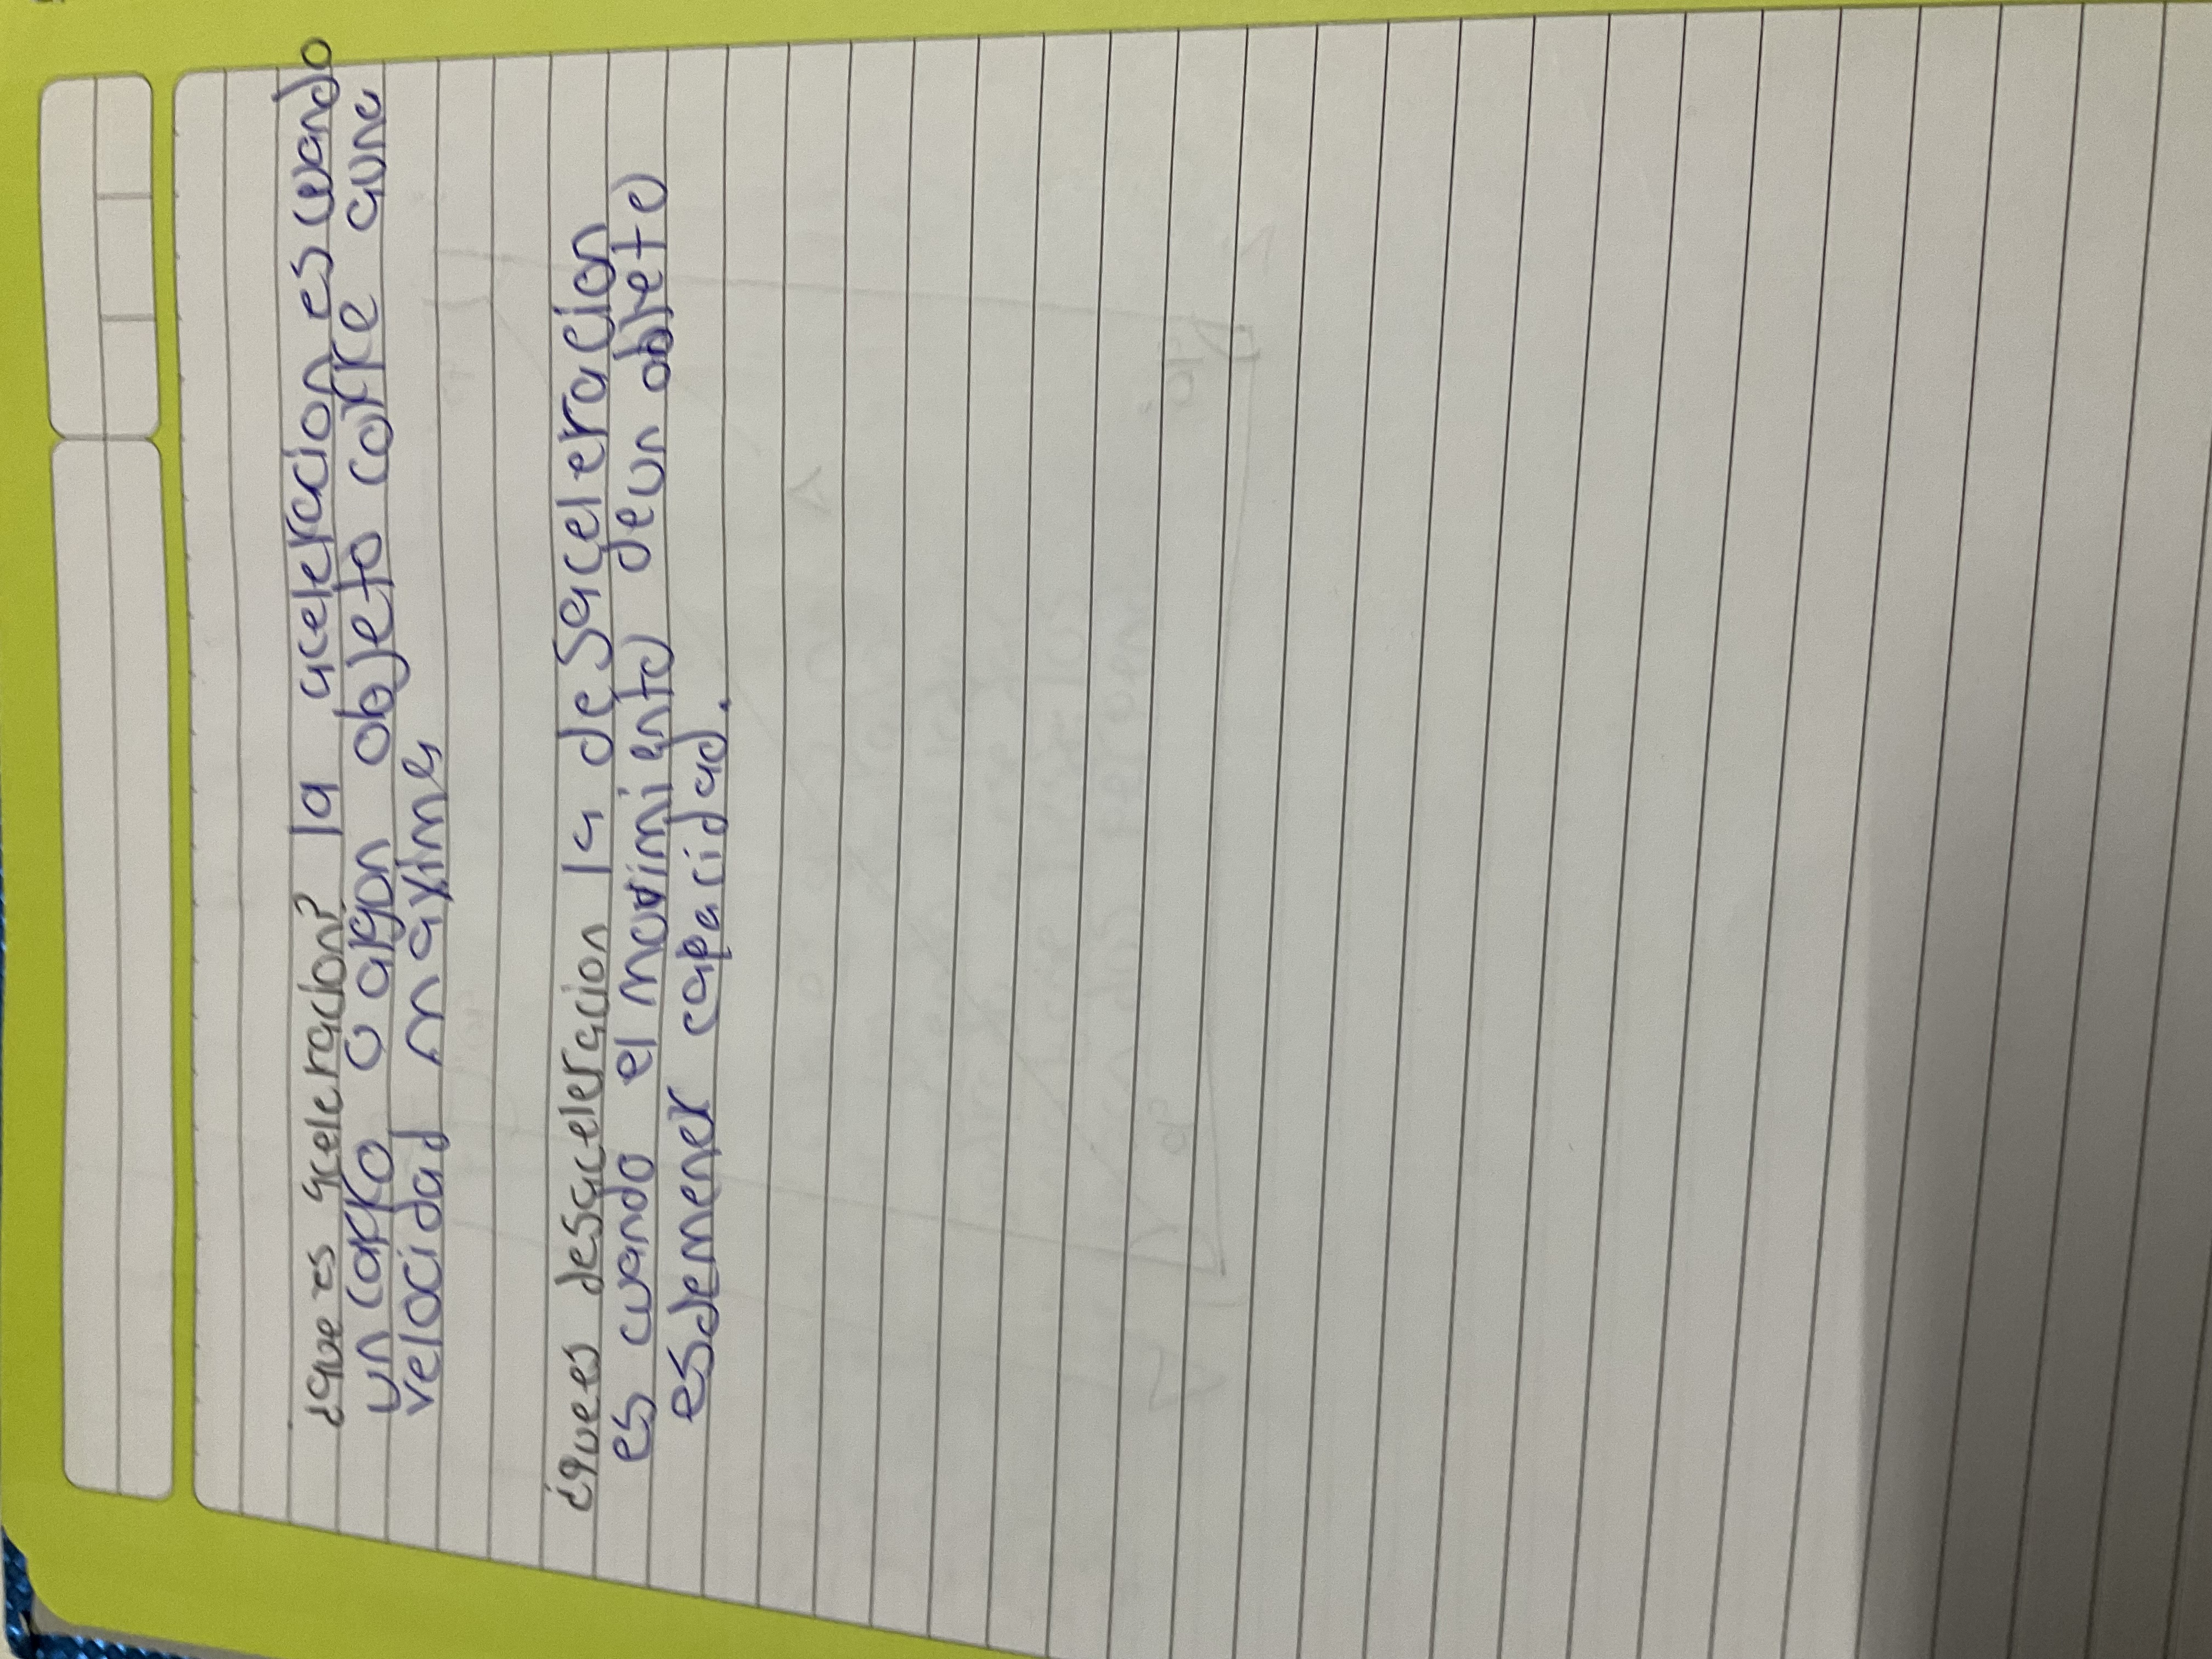 ¿que es aceleracion? la aceleracion es cuando
un carro o algon objeto corre auna
velocidad maxima
¿que es desaceleracion la desaceleracion
es cuando el movimiento de un objeto
es demener capacidad.